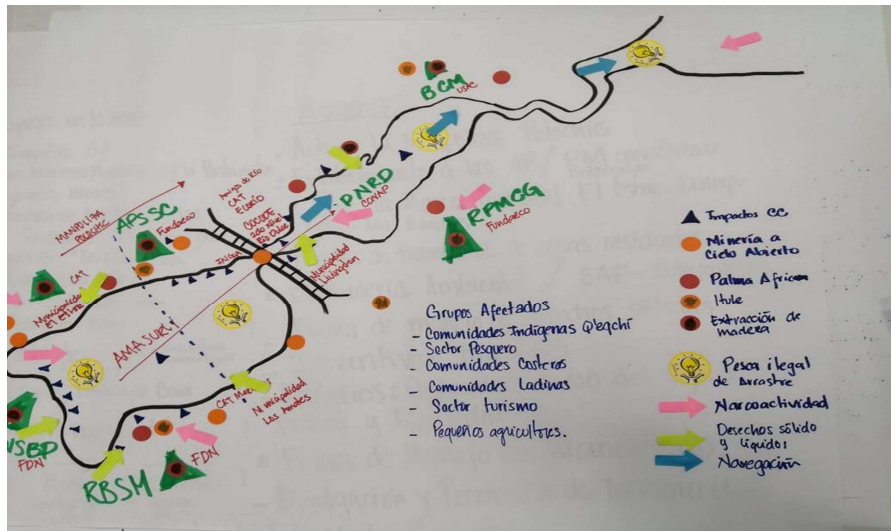 BCM
USAC
PNRD
CONAP
RPMCG
Fundaeco
APSSC
Fundaeco
CAT
Municipalidad
El Estor
Amigos del Río
CAT
Ecorío
Río Dulce
Municipalidad
Livingston
AMASURLI
CAT
Municipalidad
Los Amates
FDN
RBSM
FDN
Grupos Afectados
- Comunidades Indígenas Q'eqchí
- Sector Pesquero
- Comunidades Costeras
- Comunidades Ladinas
- Sector turismo
- Pequeños agricultores.
Impactos CC
Minería a
Cielo Abierto
Palma African
Hule
Extracción de
madera
Pesca ilegal
de Arrastre
Narcoactividad
Desechos sólido
y líquidos
Navegación